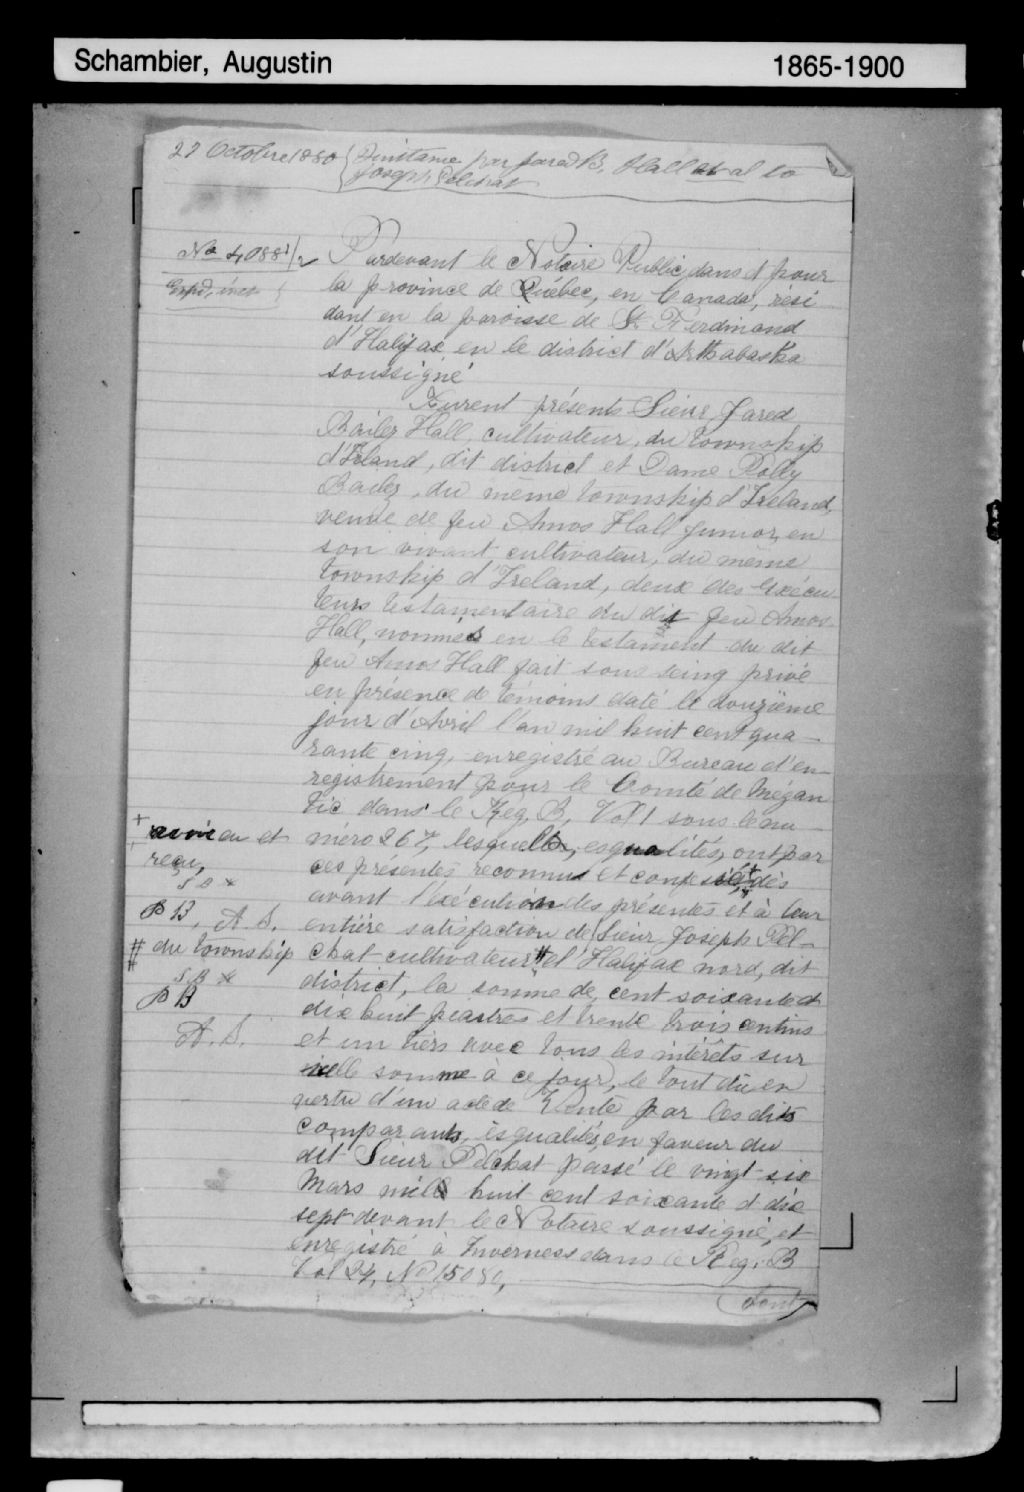 Schambier, Augustin 1865-1900
27 Octobre 1880 { Quittance par Jared B. Hall et al to
Joseph Pelchat
No 4,088 1/2
Pardevant le Notaire Public, dans & pour
la province de Québec, en Canada, rési
dant en la paroisse de St Ferdinand
d'Halifax, en le district d'Arthabaska
soussigné
Furent présents Sieur Jared
Bailey Hall, cultivateur, du township
d'Irland, dit district et Dame Polly
Bailey, du même township d'Ireland,
veuve de feu Amos Hall junior, en
son vivant cultivateur, du même
township d'Ireland, deux des exécu
teurs testamentaire du dit feu Amos
Hall, nommés en le testament du dit
feu Amos Hall fait sous seing privé
en présence de témoins daté le douzième
jour d'Avril l'an mil huit cent qua-
rante cinq, enregistré au Bureau d'en-
registrement pour le Comté de Mégan
tic dans le Reg. B, Vol 1 sous le nu-
méro 267, lesquels, esqualités, ont par
ces présentes reconnus et confessé + dès
avant l'exécution des présentes et à leur
entière satisfaction de Sieur Joseph Pel-
chat cultivateur # d'Halifax nord, dit
district, la somme de cent soixante &
dix huit piastres et trente trois centins
et un tiers avec tous les intérêts sur
icelle somme à ce jour, le tout dû en
vertu d'un acte de Vente par les dits
comparants, èsqualités, en faveur du
dit Sieur Pelchat passé le vingt six
Mars mille huit cent soixante & dix
sept devant le Notaire soussigné, et
enregistré à Inverness dans le Reg. B
Vol 24, No 15080,
dont
+ avoir eu et
reçu,
P B, A. S.
# du township
P B
A. S.